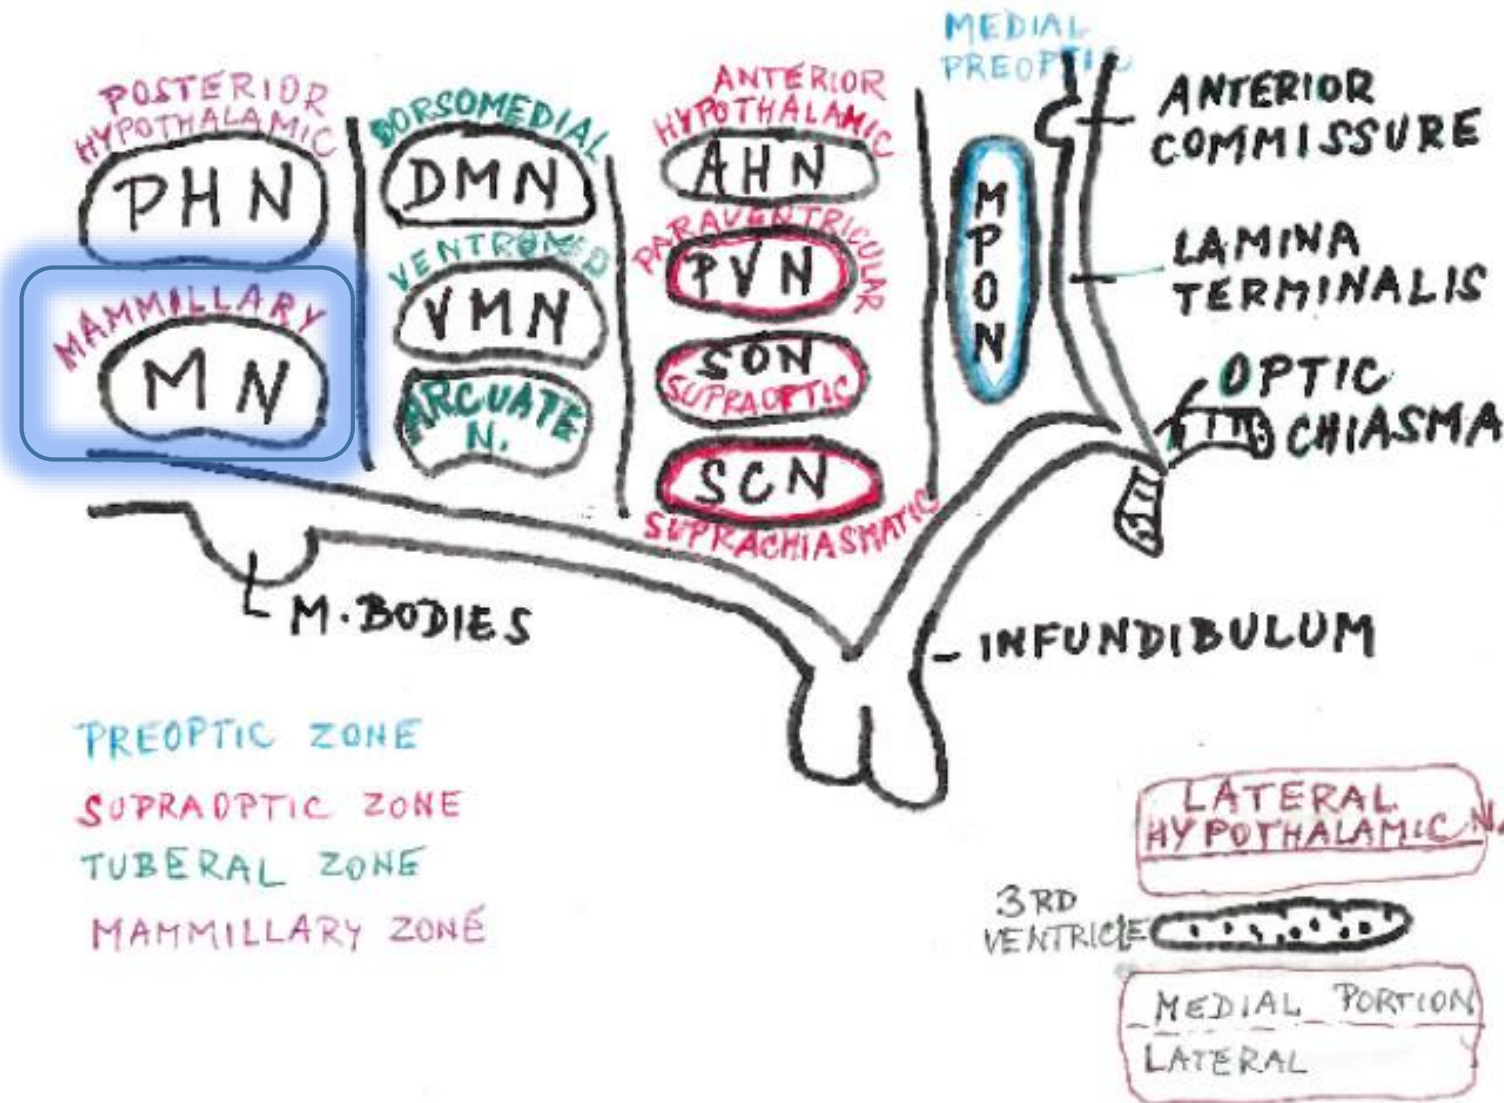 POSTERIOR
HYPOTHALAMIC
PHN
MAMMILLARY
MN
DORSOMEDIAL
DMN
VENTROMED
VMN
ARCUATE
N.
ANTERIOR
HYPOTHALAMIC
AHN
PARAVENTRICULAR
PVN
SON
SUPRAOPTIC
SCN
SUPRACHIASMATIC
MEDIAL
PREOPTIC
MPON
ANTERIOR
COMMISSURE
LAMINA
TERMINALIS
OPTIC
CHIASMA
M. BODIES
INFUNDIBULUM
PREOPTIC ZONE
SUPRAOPTIC ZONE
TUBERAL ZONE
MAMMILLARY ZONE
LATERAL
HYPOTHALAMIC N.
3RD
VENTRICLE
MEDIAL PORTION
LATERAL